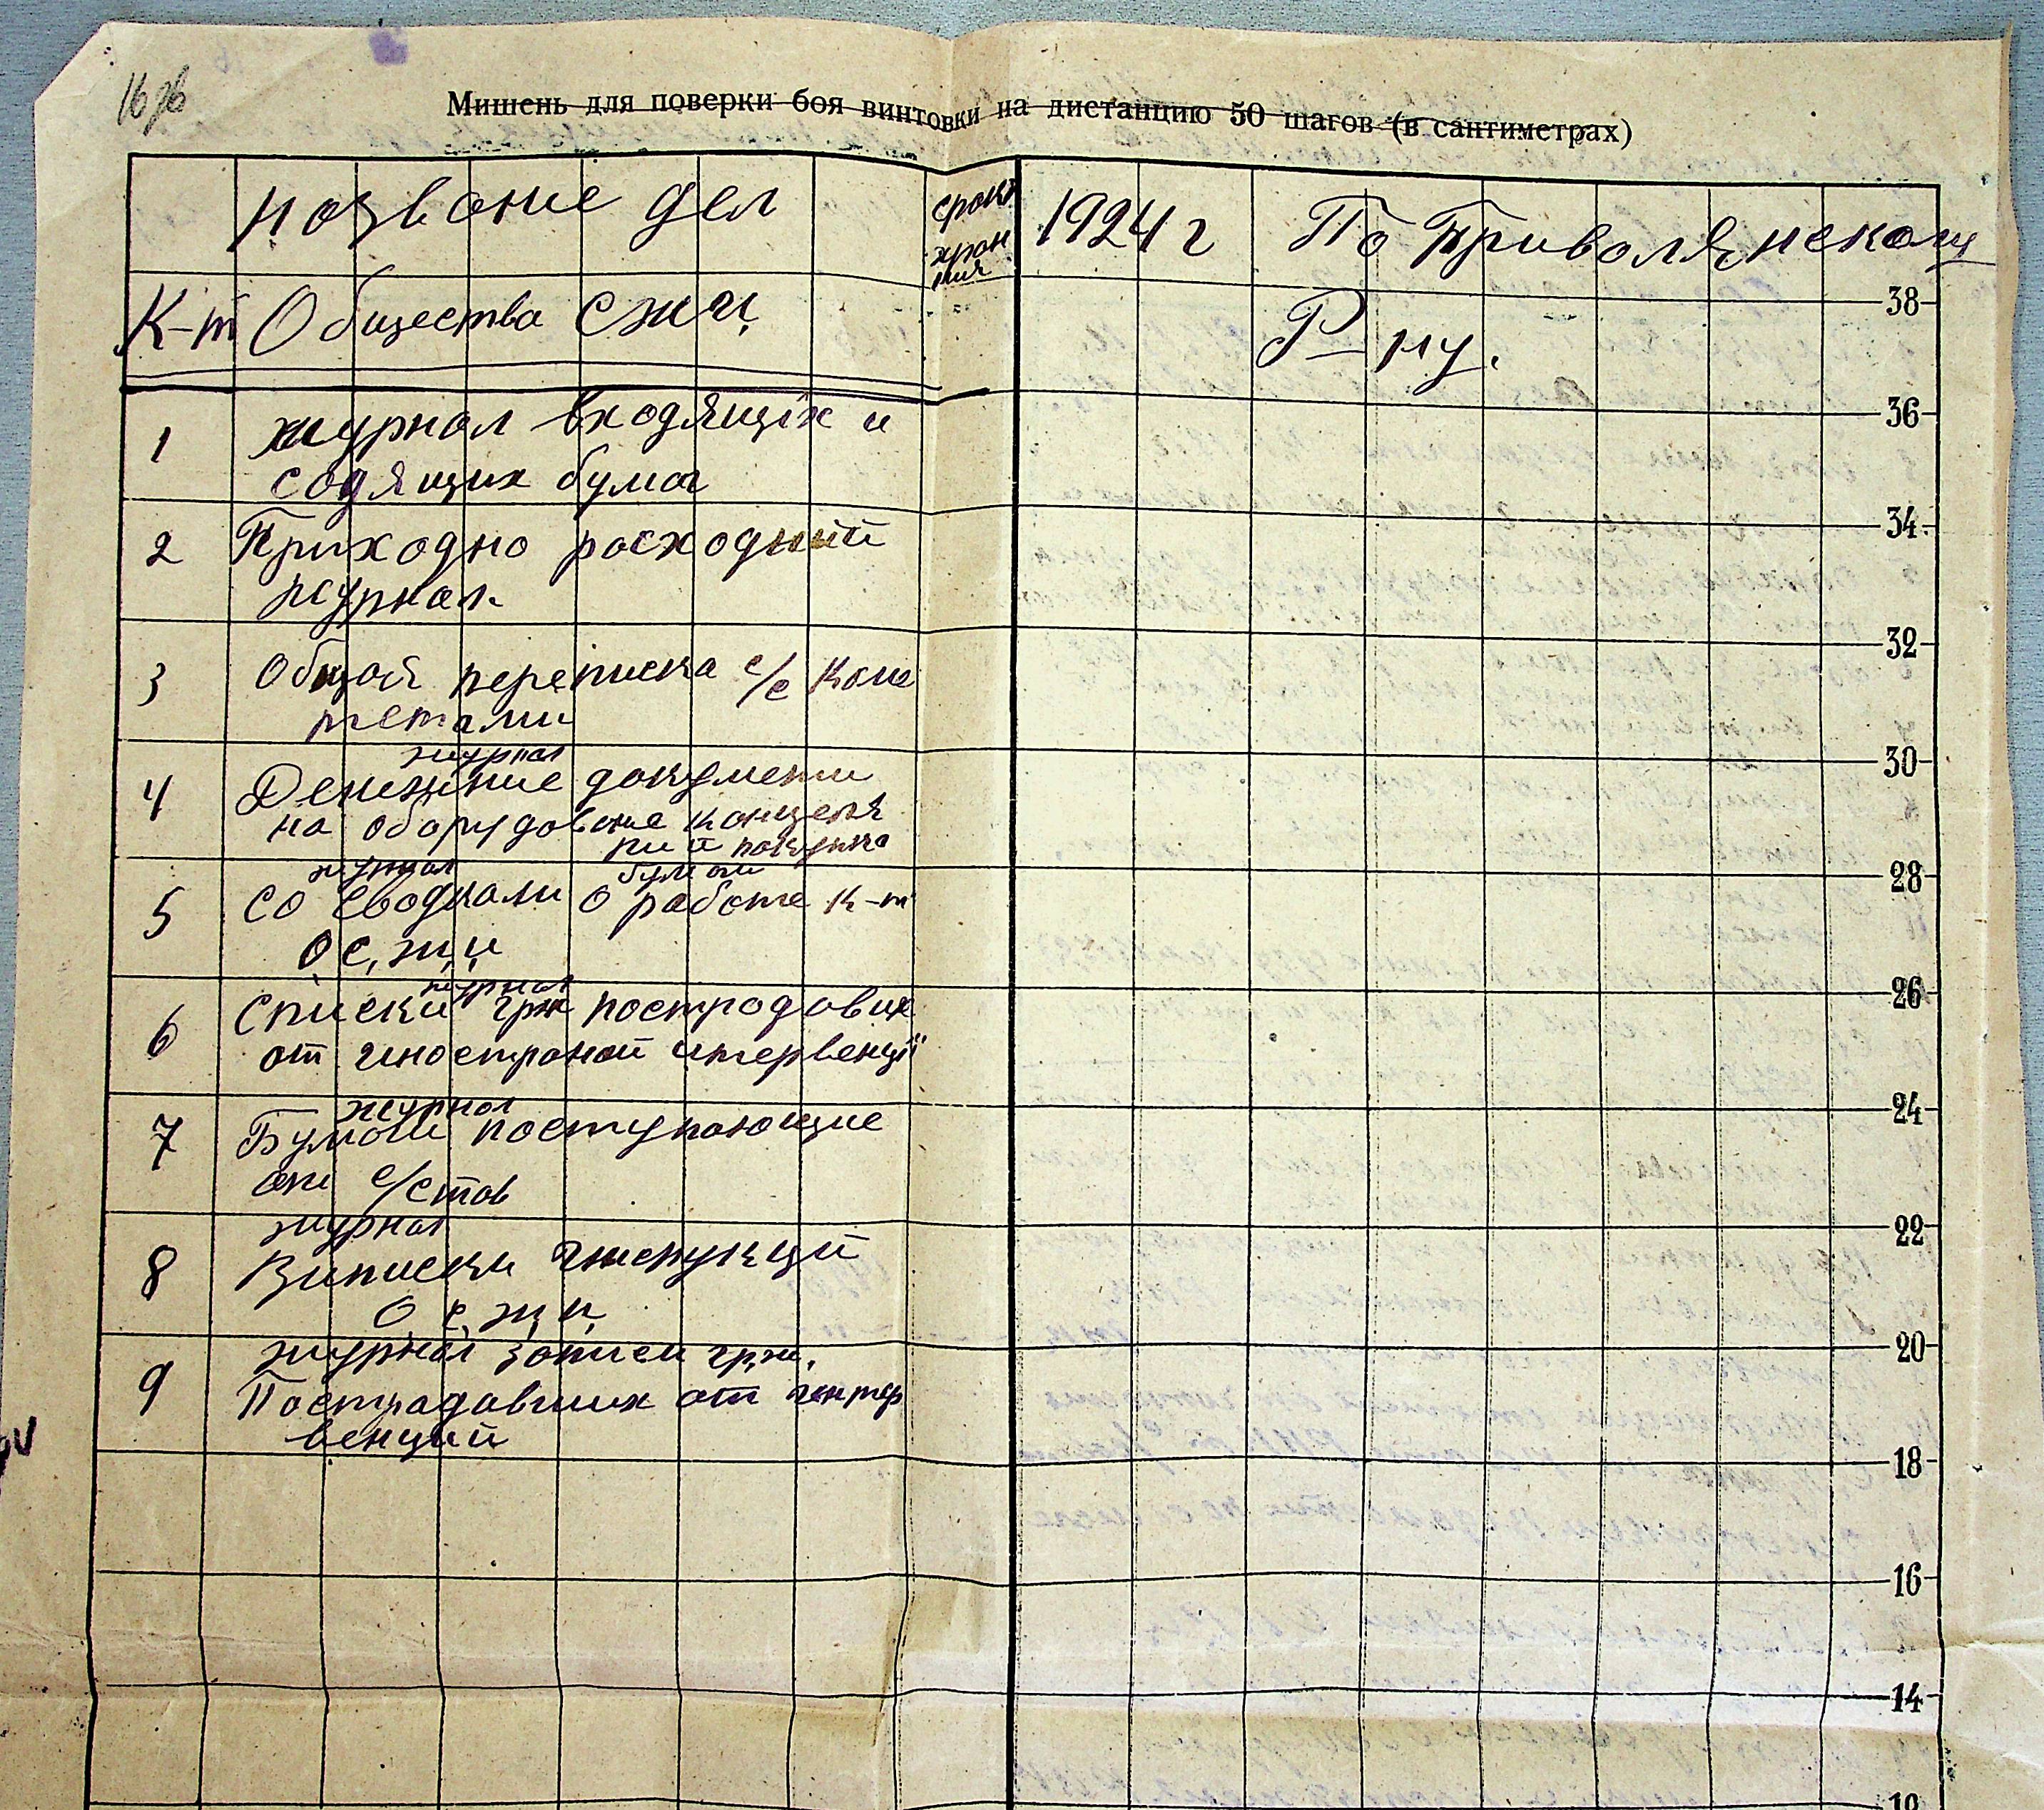 Мишень для поверки боя винтовки на дистанцию 50 шагов (в сантиметрах)
нозвоние дел
срокт
хран
ния
1924 г По Приволянскому
Р-ну.
К-т Общества сжи,
38
1 журнал входящіх и
содящих бумог
36
2 Приходно росходний
журнал.
34
3 Общая переписка с/с Коме
тетами
32
журнал
4 Денежние документи
на оборудовоние концеля
рии покупка
бумаги
30
журнал
5 Со Сводками о работе К-т
О,с,ж,и
28
журнал
6 Списки грж пострадових
от иностраной итервенціі
26
журнал
7 Бумоги поступающие
от с/стов
24
журнал
8 Виписки инструкций
О с,ж,и,
22
9 журнал записи гр,ж.
Пострадавших от интер
венций
20
18
16
14